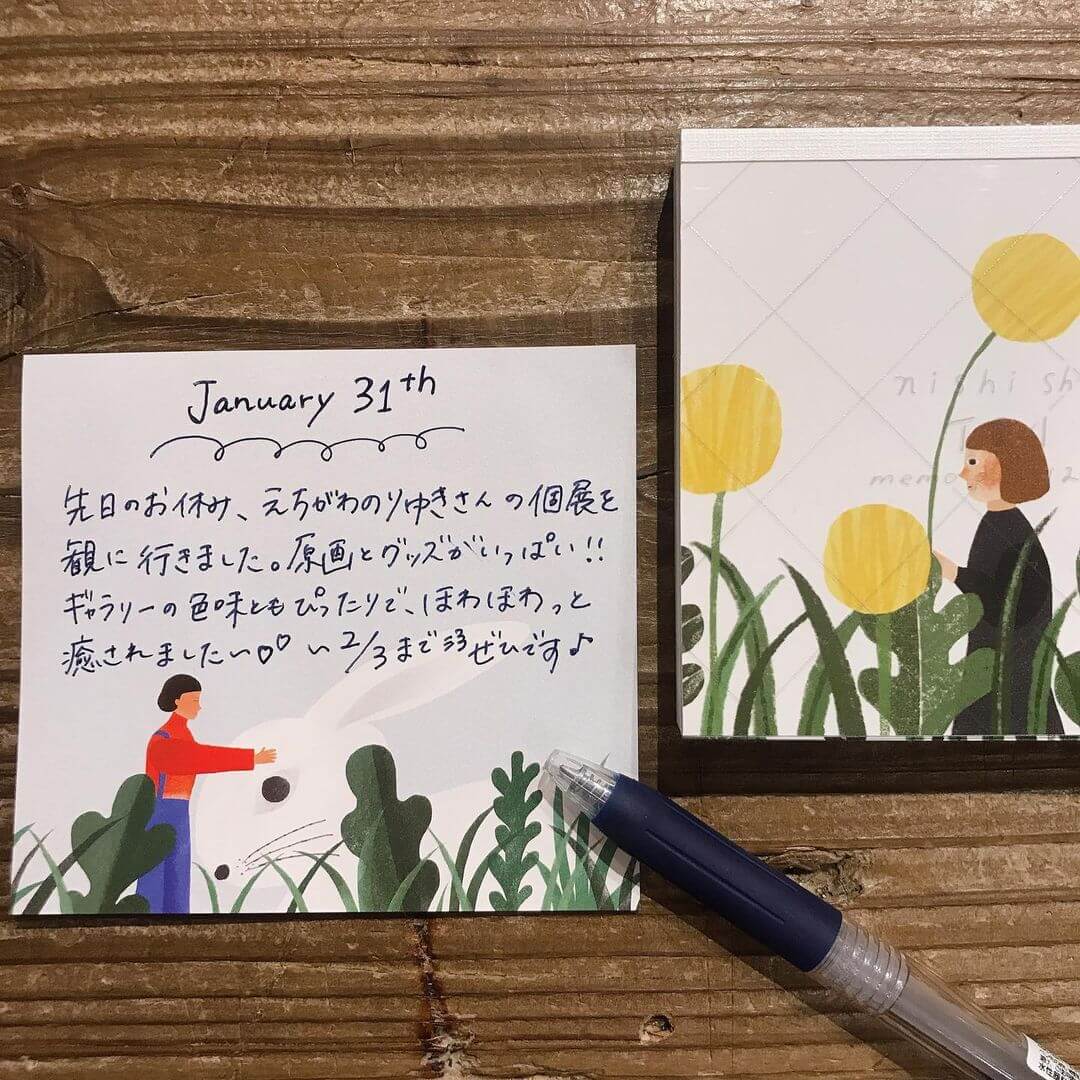 January 31th
先日のお休み、えちがわのりゆきさんの個展を
観に行きました。原画とグッズがいっぱい!!
ギャラリーの色味ともぴったりで、ほわほわっと
癒されました♡♡ 2/3まで ぜひです♪
nishi
memo
水性